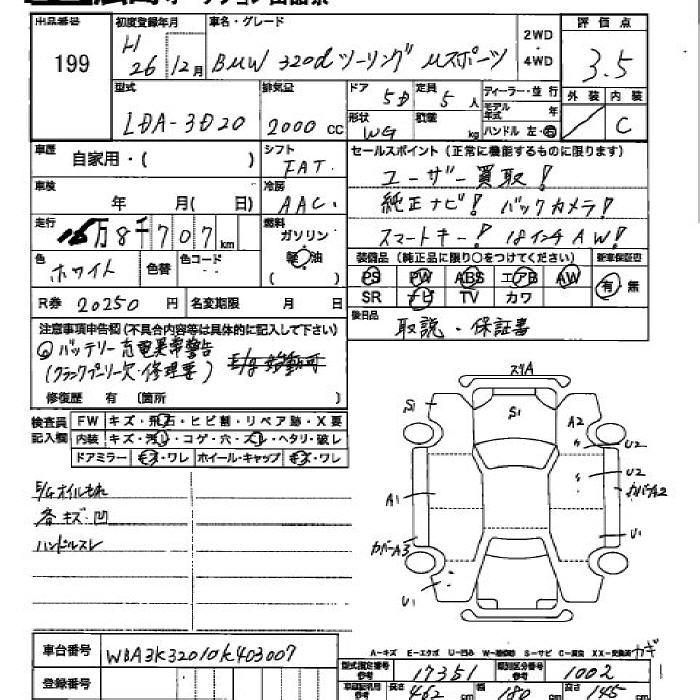 出品番号
199
初度登録年月
H 26年12月
車名・グレード
BMW 320d ツーリング Mスポーツ
2WD
・
4WD
評価点
3.5
型式
LDA-3D20
排気量
2000 CC
ドア 5D
定員 5人
形状 WG
積載 kg
ディーラー・並行
モデル年式 年
ハンドル 左・右
外装 内装
C
車歴 自家用・( )
シフト FAT.
車検 年 月( 日)
冷房 AAC.
セールスポイント(正常に機能するものに限ります)
ユーザー買取!
純正ナビ! バックカメラ!
スマートキー! 18インチAW!
走行 万8千707km
燃料 ガソリン
軽油
( )
色 ホワイト
色替
色コード
装備品(純正品に限り○をつけてください)
新車保証書
PS PW ABS エアB AW
SR ナビ TV カワ
有・無
R券 20250円
名変期限 月 日
後日品
取説・保証書
注意事項申告欄(不具合内容等は具体的に記入して下さい)
バッテリー充電異常警告
(クランクプーリー欠・修理要)
修復歴 有 〔箇所 〕
検査員記入欄
FW キズ・飛石・ヒビ割・リペア跡・X要
内装 キズ・汚れ・コゲ・穴・スレ・ヘタリ・破レ
ドアミラー キズ・ワレ ホイール・キャップ キズ・ワレ
E/Gオイルもれ
各キズ・凹
ハンドルスレ
スリA
S1
S1
A2
U2
U2
A1
カバーA2
U1
カバーA3
U1
A-キズ E-エクボ U-凹み W-補修跡 S-サビ C-腐食 XX-交換済
カギ
1
車台番号
WBA3K32010K403007
登録番号
型式指定番号 参考
17351
類別区分番号 参考
1002
長さ 462 cm
幅 180 cm
高さ 145 cm